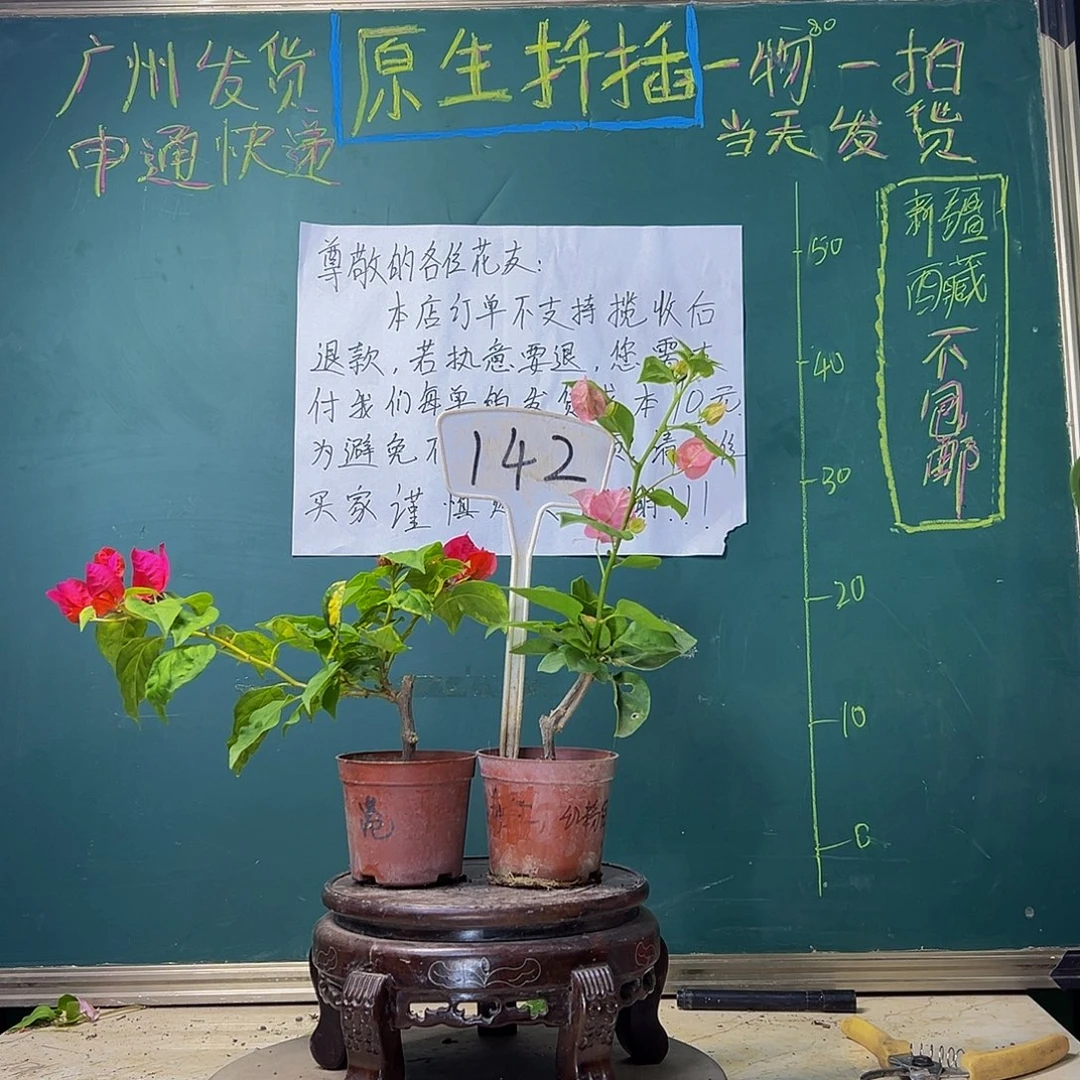 广州发货
申通快递
原生扦插
一物一拍
当天发货
80
新疆
西藏
不
包
邮
50
40
30
20
10
0
尊敬的各位花友:
本店订单不支持揽收后
退款,若执意要退,您需
付我们每单的发货 本10元.
为避免不 请 位
买家谨慎 !!!
142